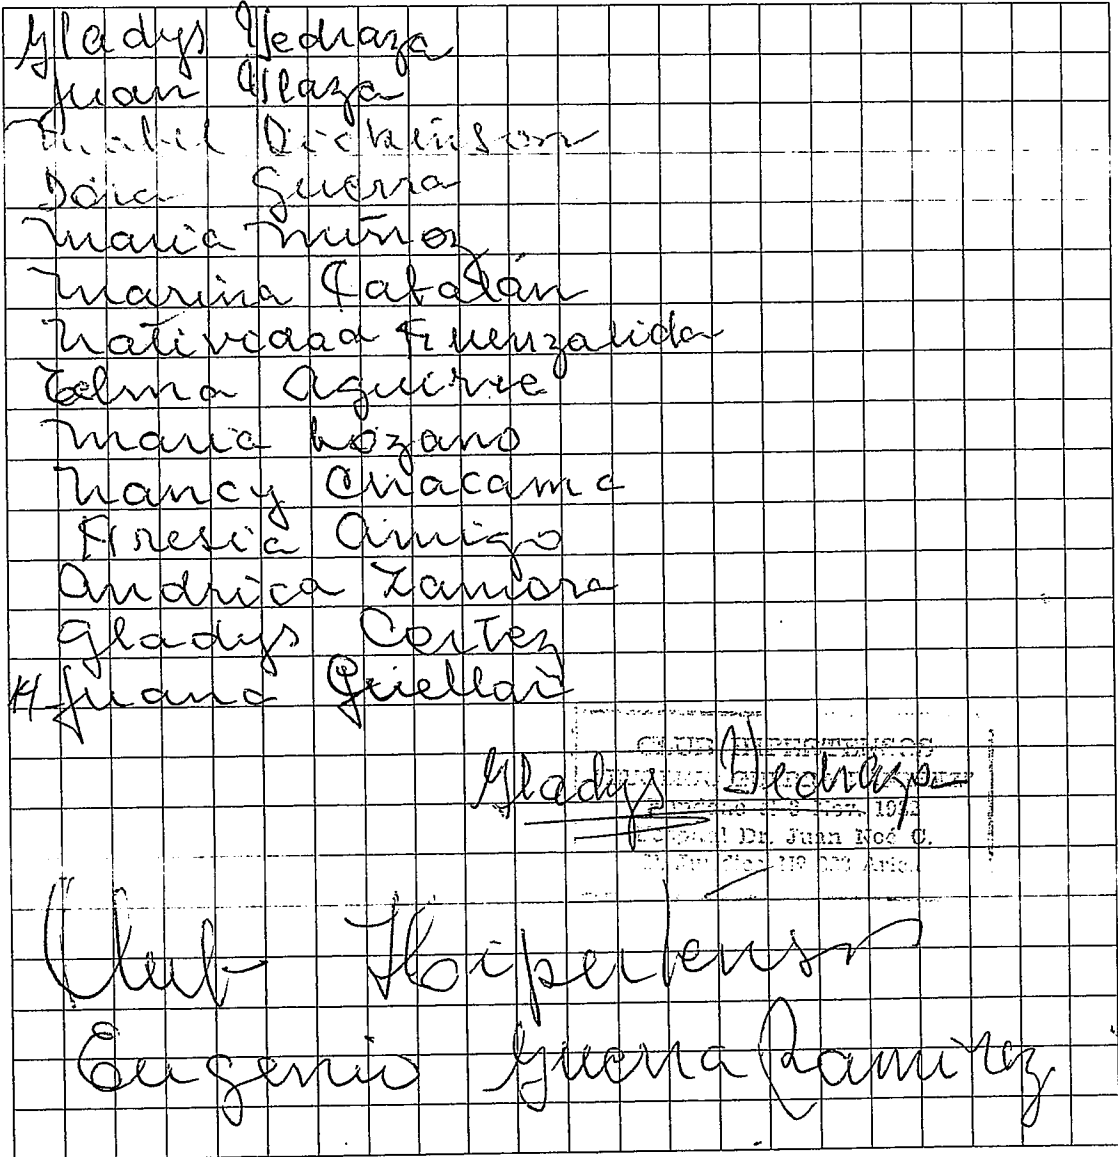 Gladys Pedraza
Juan Plaza
Mabil Dickenson
Dora Guerra
Maria Muñoz
Marina Catalán
Natividad Fuenzalida
Telma Aguirre
Maria Lozano
Nancy Chacama
Fresia Amigo
Andrica Zamora
Gladys Cortez
14 Juana
CLUB HIPERTENSOS
Gladys Pedraza
Dr. Juan Noé C.
Club Hipertenso
Eugenio Guerra Ramirez